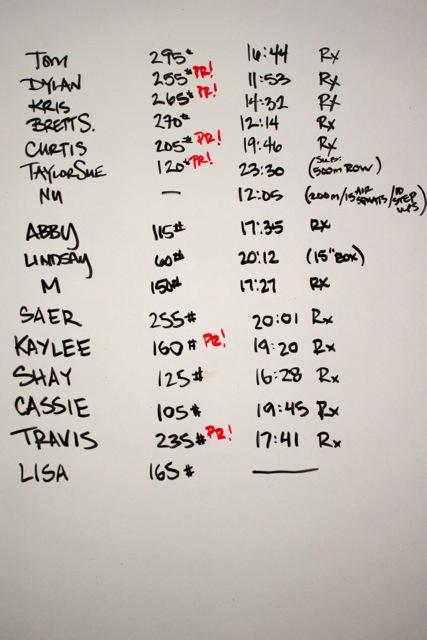 Tom 295# 16:44 Rx
DYLAN 255# PR! 11:53 Rx
KRIS 265# PR! 14:32 Rx
BRETT S. 270# 12:14 Rx
CURTIS 205# PR! 19:46 Rx
TAYLOR SUE 120# PR! 23:30 (SUBS: 500m ROW)
NU — 12:05 (200m/15 AIR SQUATS/10 STEP UPS)
ABBY 115# 17:35 Rx
LINDSAY 60# 20:12 (15" BOX)
M 150# 17:27 Rx
SAER 255# 20:01 Rx
KAYLEE 160# PR! 19:20 Rx
SHAY 125# 16:28 Rx
CASSIE 105# 19:45 Rx
TRAVIS 235# PR! 17:41 Rx
LISA 165# —